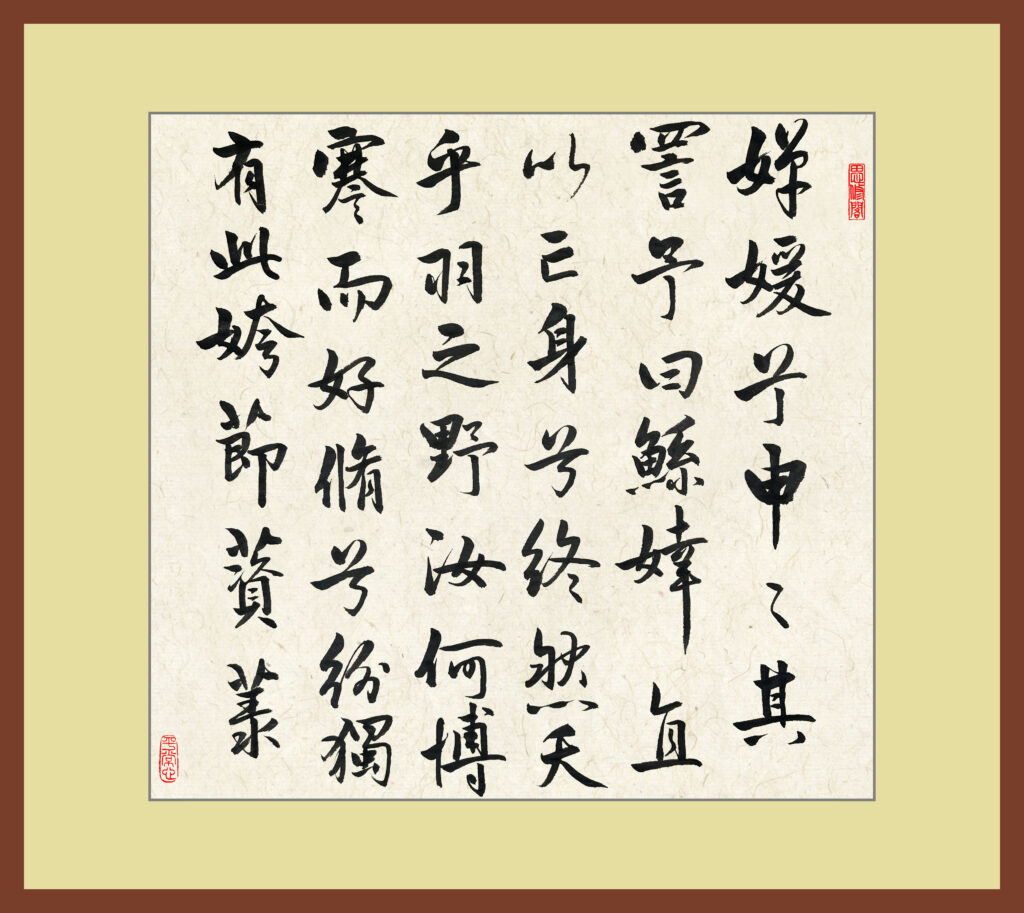 思修閣
嬋媛兮申〻其
詈予曰鯀婞直
以亡身兮終然夭
乎羽之野汝何博
謇而好脩兮紛獨
有此姱節薋菉